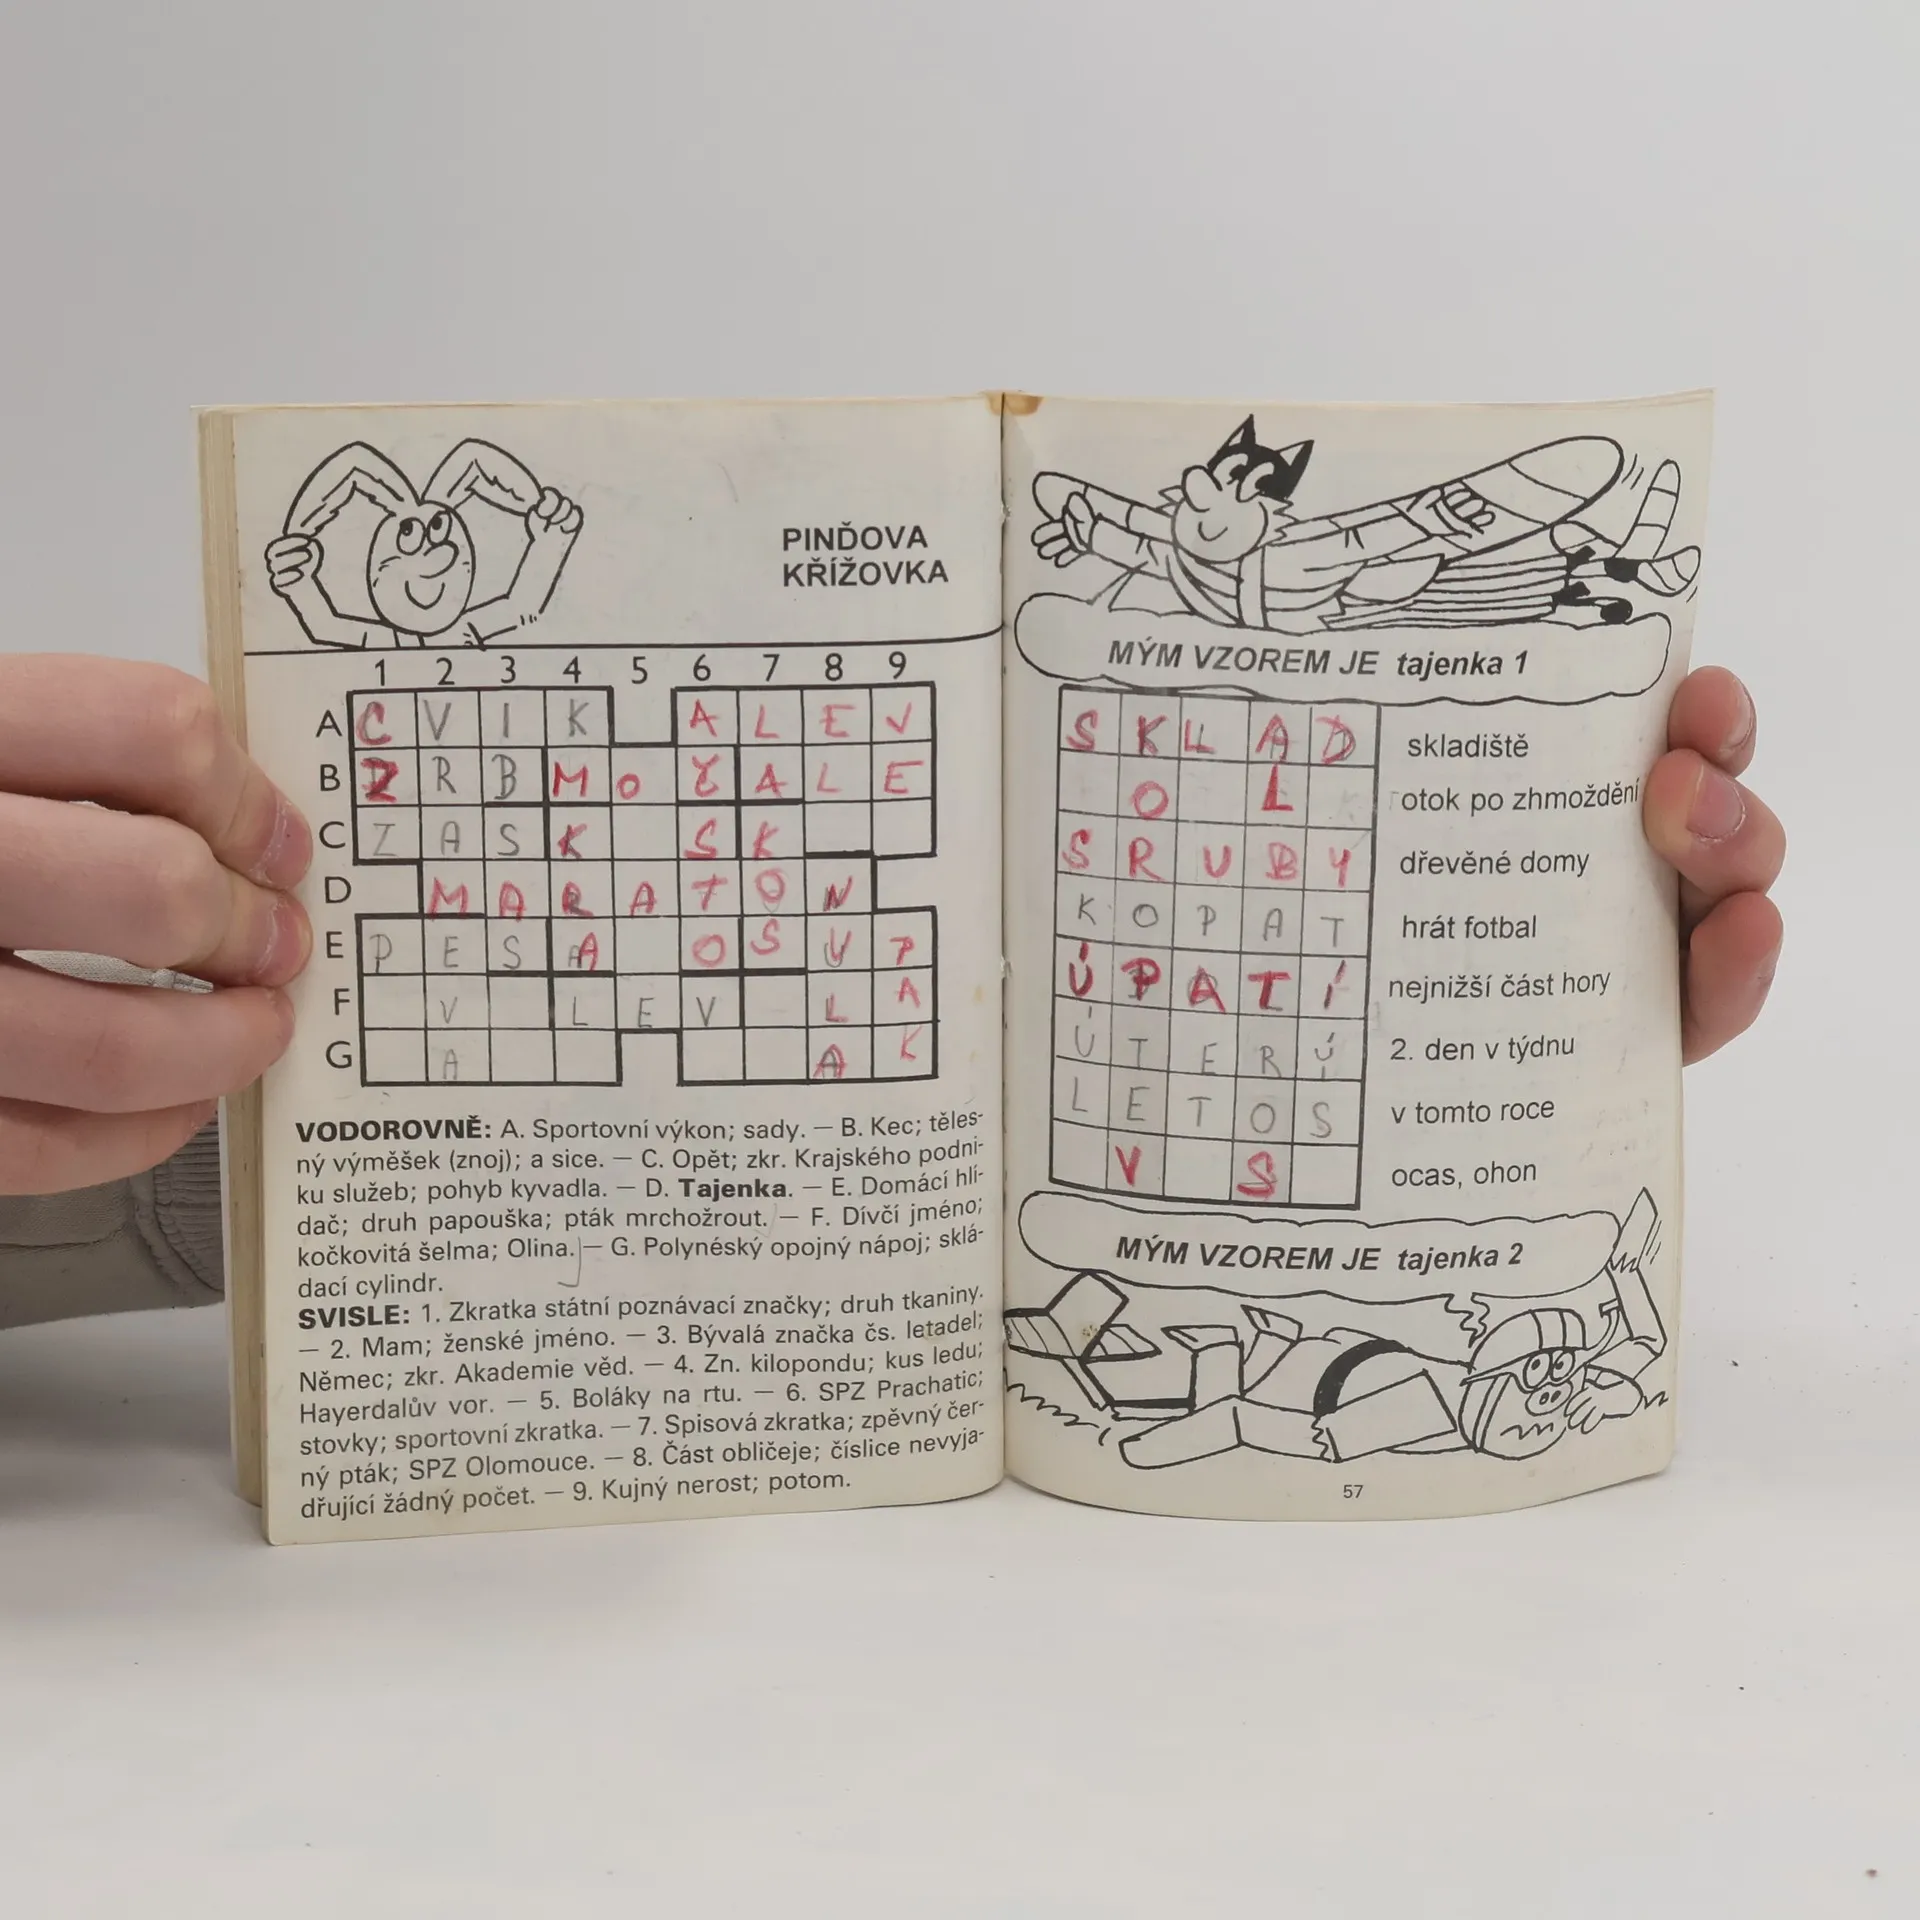 PINĎOVA
KŘÍŽOVKA
1 2 3 4 5 6 7 8 9
A C V I K A L E J
B Z R B M O Č A L E
C Z A S K S K
D M A R A T O N
E P E S A O S U P
F V L E V L A
G A A K
VODOROVNĚ: A. Sportovní výkon; sady. — B. Kec; těles-
ný výměšek (znoj); a sice. — C. Opět; zkr. Krajského podni-
ku služeb; pohyb kyvadla. — D. Tajenka. — E. Domácí hlí-
dač; druh papouška; pták mrchožrout. — F. Dívčí jméno;
kočkovitá šelma; Olina. — G. Polynéský opojný nápoj; sklá-
dací cylindr.
SVISLE: 1. Zkratka státní poznávací značky; druh tkaniny.
— 2. Mam; ženské jméno. — 3. Bývalá značka čs. letadel;
Němec; zkr. Akademie věd. — 4. Zn. kilopondu; kus ledu;
Hayerdalův vor. — 5. Boláky na rtu. — 6. SPZ Prachatic;
stovky; sportovní zkratka. — 7. Spisová zkratka; zpěvný čer-
ný pták; SPZ Olomouce. — 8. Část obličeje; číslice nevyja-
dřující žádný počet. — 9. Kujný nerost; potom.
MÝM VZOREM JE tajenka 1
S K L A D skladiště
O L otok po zhmoždění
S R U B Y dřevěné domy
K O P A T hrát fotbal
Ú P A T Í nejnižší část hory
Ú T E R Ý 2. den v týdnu
L E T O S v tomto roce
V S ocas, ohon
MÝM VZOREM JE tajenka 2
57